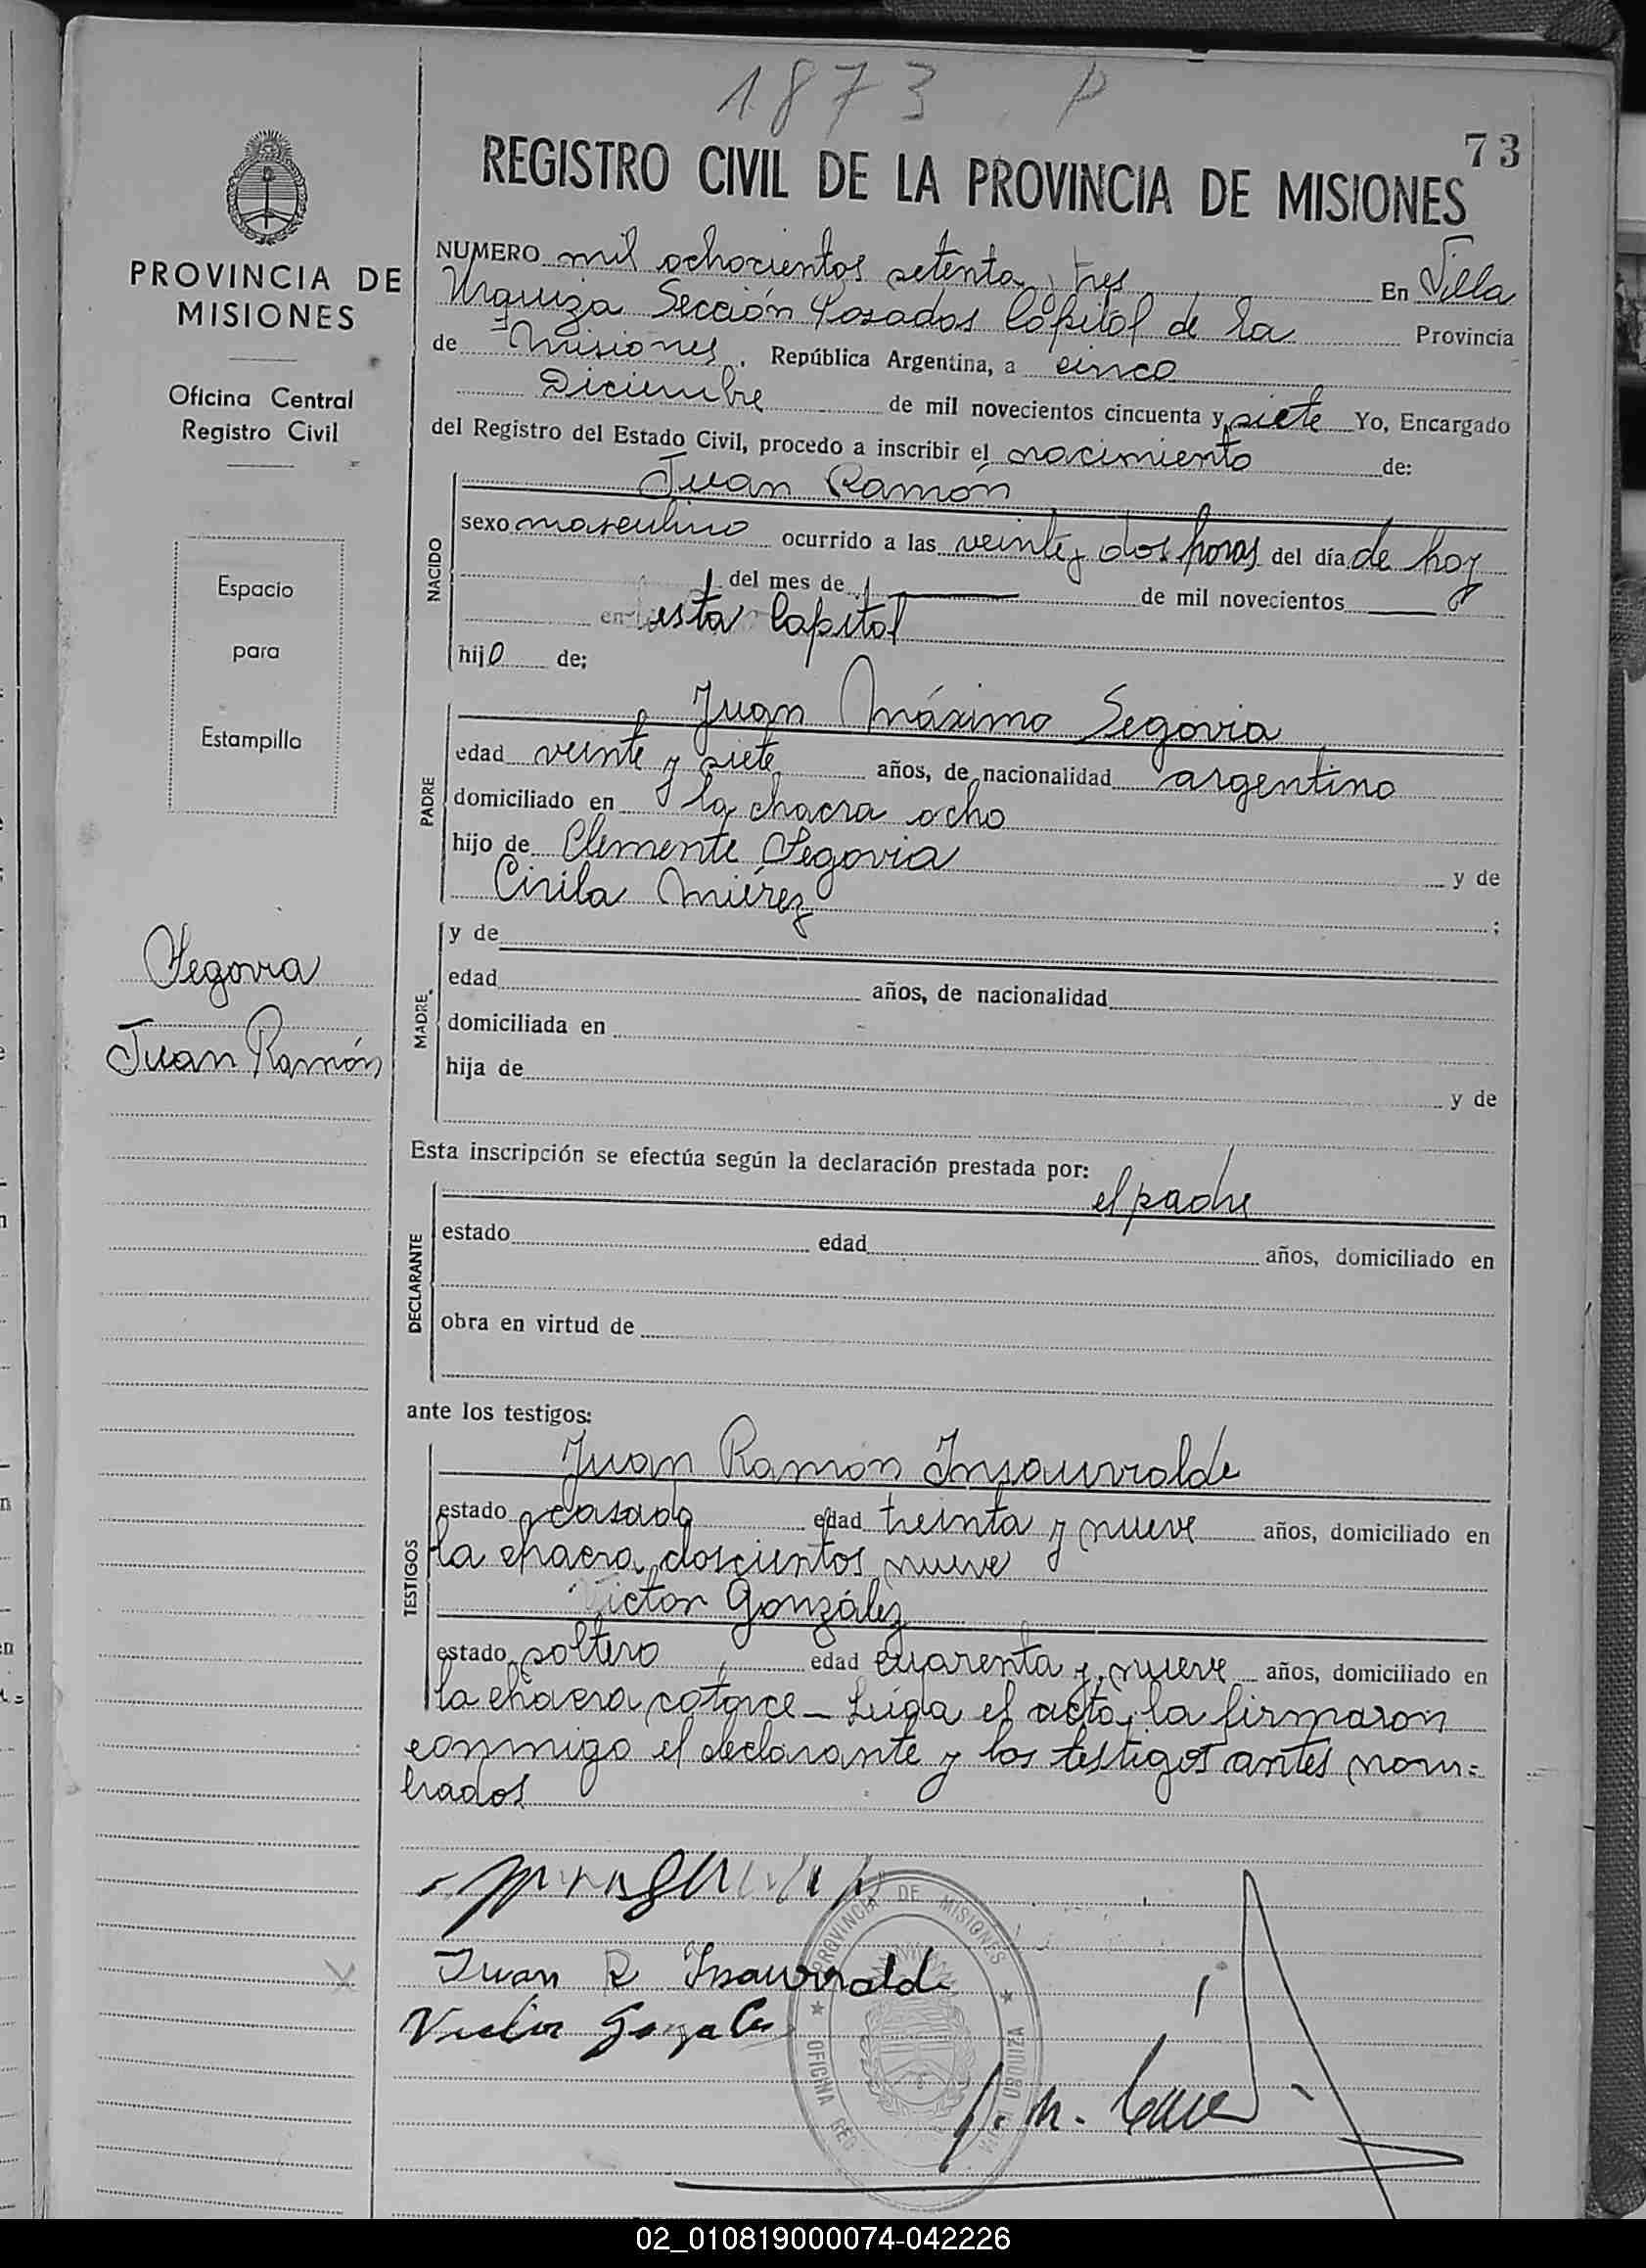 1873 P
73
REGISTRO CIVIL DE LA PROVINCIA DE MISIONES
PROVINCIA DE
MISIONES
Oficina Central
Registro Civil
Espacio
para
Estampilla
Segovia
Juan Ramón
NUMERO mil ochocientos setenta y tres En Villa
Urquiza Sección Posadas Capital de la Provincia
de Misiones. República Argentina, a cinco
Diciembre de mil novecientos cincuenta y siete Yo, Encargado
del Registro del Estado Civil, procedo a inscribir el nacimiento de:
NACIDO
Juan Ramón
sexo masculino ocurrido a las veinte y dos horas del día de hoy
del mes de de mil novecientos
en esta Capital
hijo de:
PADRE
Juan Máximo Segovia
edad veinte y siete años, de nacionalidad argentino
domiciliado en la chacra ocho
hijo de Clemente Segovia y de
Cirila Miérez ;
MADRE.
y de
edad años, de nacionalidad
domiciliada en
hija de y de
Esta inscripción se efectúa según la declaración prestada por:
el padre
DECLARANTE
estado edad años, domiciliado en
obra en virtud de
ante los testigos:
TESTIGOS
Juan Ramón Insaurralde
estado casado edad treinta y nueve años, domiciliado en
la chacra doscientos nueve
Victor González
estado soltero edad cuarenta y nueve años, domiciliado en
la chacra catorce _ Leída el acta, la firmaron
conmigo el declarante y los testigos antes nom=
brados
Juan R Insaurralde
Victor Gonzalez
PROVINCIA DE MISIONES
OFICINA REG
VILLA URQUIZA
02_010819000074-042226